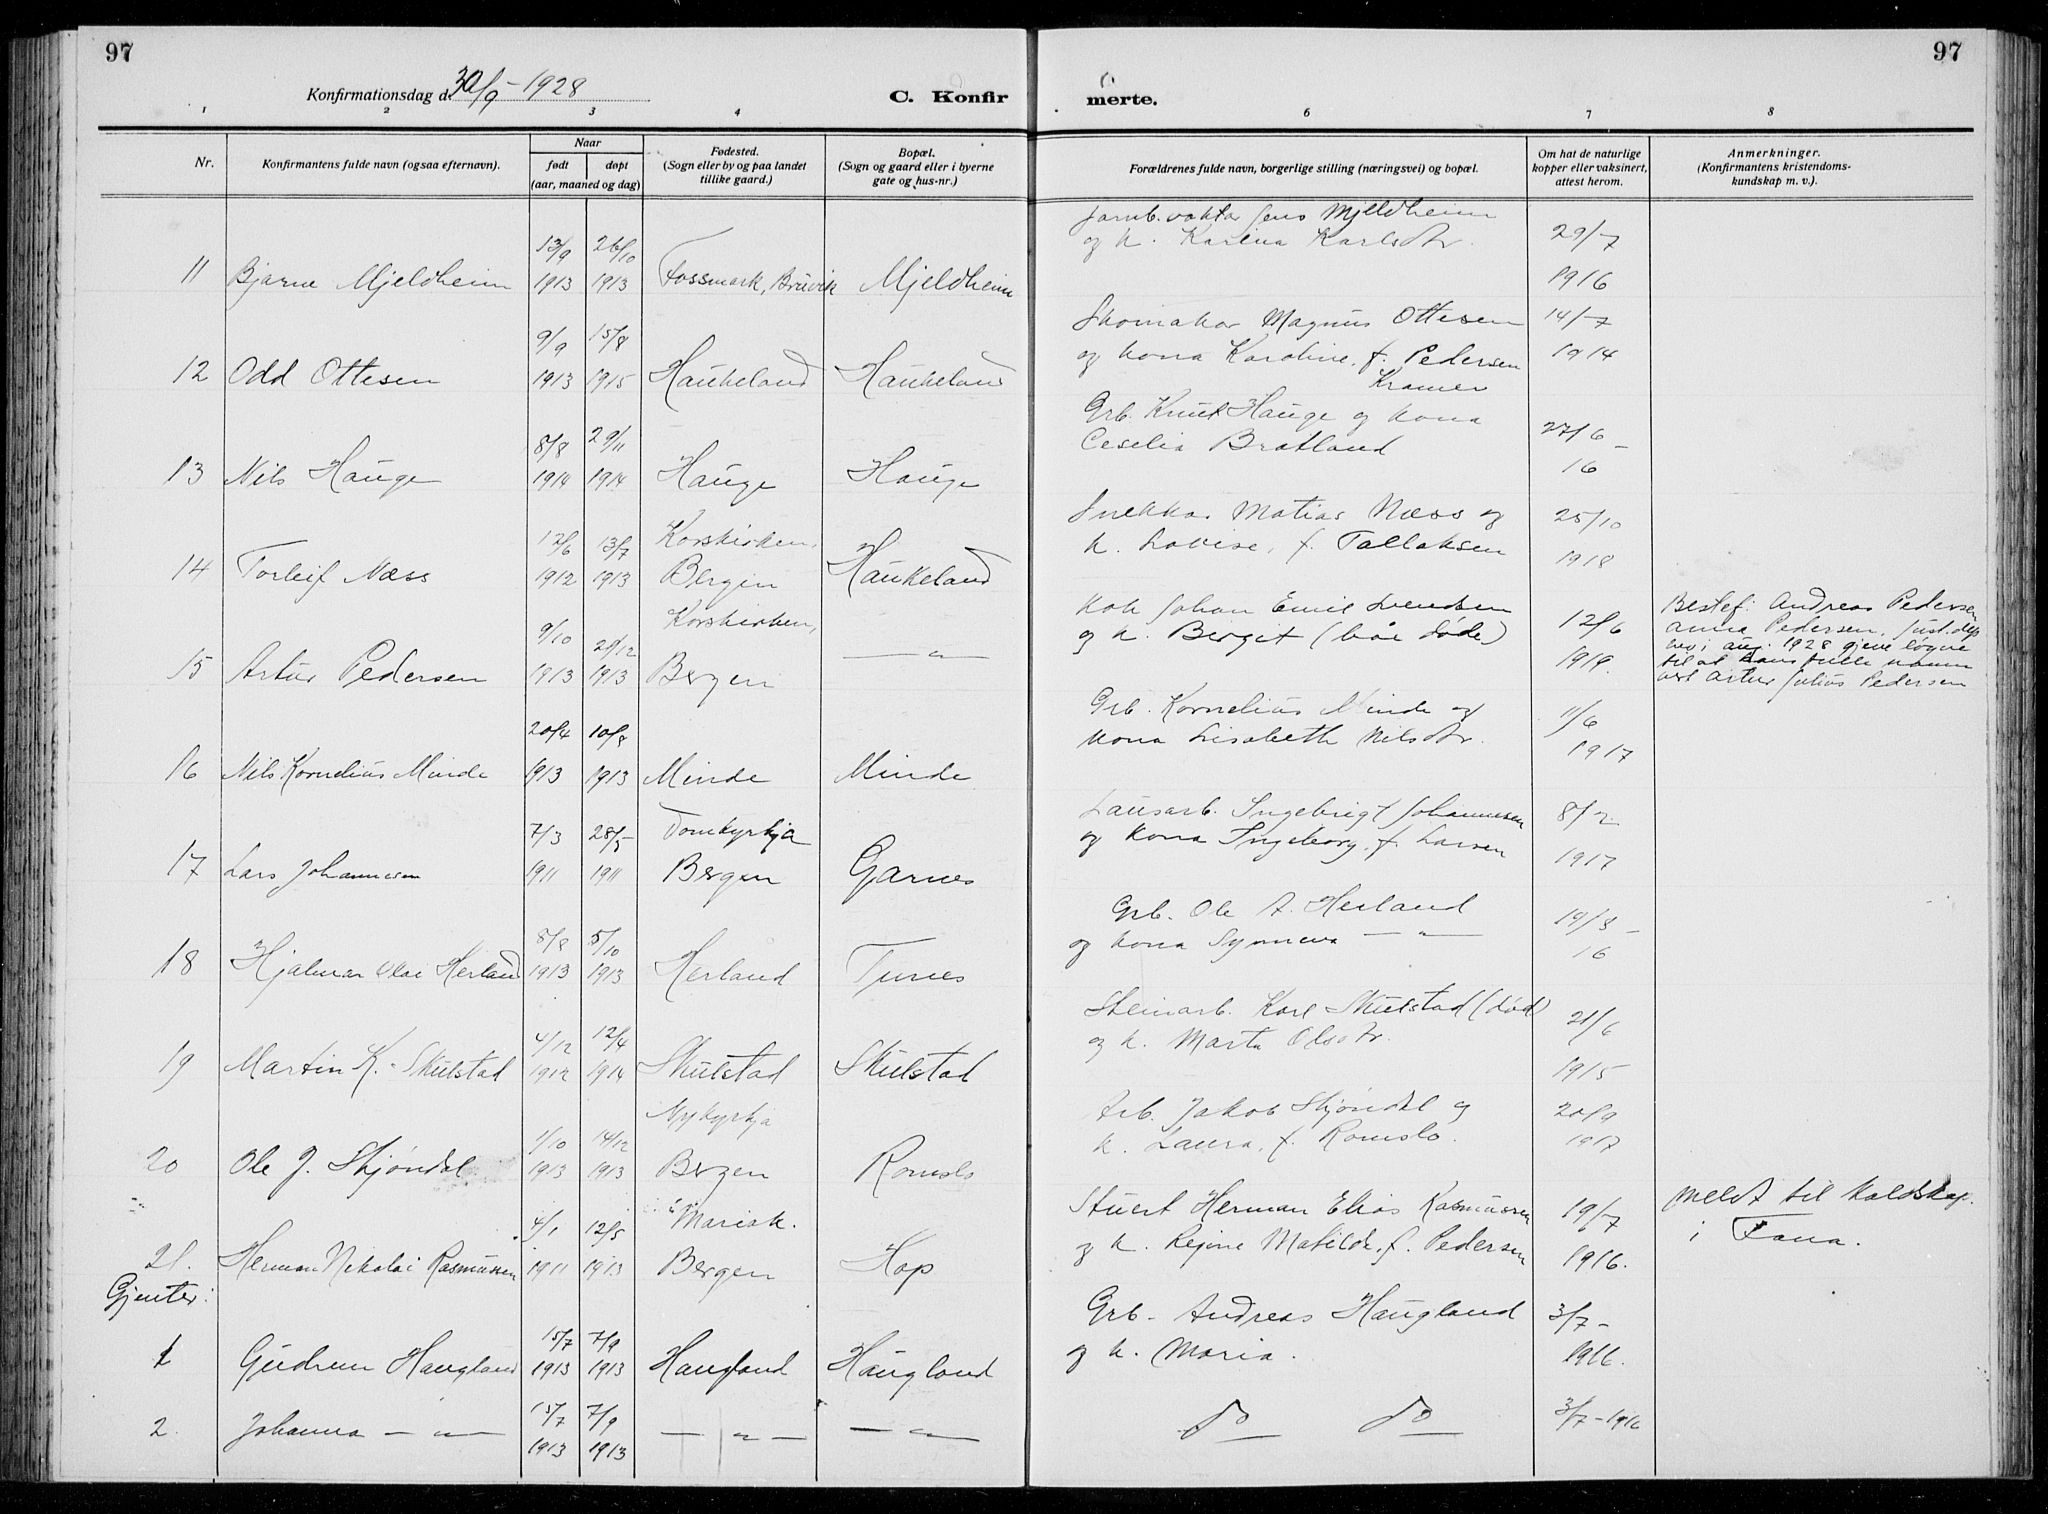 97
97
Konfirmationsdag d. 30/9 - 1928
C. Konfir
merte.
1 2 3 4 6 7 8
Nr.
Konfirmantens fulde navn (ogsaa efternavn).
Naar
født
døpt
(aar, maaned og dag)
Fødested.
(Sogn eller by og paa landet
tillike gaard.)
Bopæl.
(Sogn og gaard eller i byerne
gate og hus-nr.)
Forældrenes fulde navn, borgerlige stilling (næringsvei) og bopæl.
Om hat de naturlige
kopper eller vaksinert,
attest herom.
Anmerkninger.
(Konfirmantens kristendoms-
kundskap m. v.).
Jarnb.vaktar Jens Mjeldheim
13/9 26/10 og k. Karina Karlsdtr. 29/7
11 Bjarne Mjeldheim 1913 1913 Fossmark, Bruvik Mjeldheim 1916
9/9 15/8 Skomakar Magnus Ottesen 14/7
12 Odd Ottesen 1913 1915 Haukeland Haukeland og kona Karoline, f. Pedersen 1914
Kramer
8/8 29/11 Grb. Knut Hauge og kona 27/6 -
13 Nils Hauge 1914 1914 Hauge Hauge Ceselia Bratland 16
12/6 13/7 Korskirken, Snekkar Matias Næss og 25/10
14 Torleif Næss 1912 1913 Bergen Haukeland k. Lovise, f. Tallaksen 1918
9/10 21/12 Korskirken, Kok Johan Emil Svendsen 12/6 Bestef: Andreas Pedersen
15 Artur Pedersen 1913 1913 Bergen — " — og k. Berget (båe døde) 1919. Anna Pedersen. Just.dep
hev i aug. 1928 gjeve løyve
til at hans fulle namn
vert Artur Julius Pedersen
20/4 10/8 Grb. Kornelius Minde og 11/6
16 Nils Kornelius Minde 1913 1913 Minde Minde kona Lisabeth Nilsdtr. 1917
7/3 28/5 Domkyrkja Lausarb. Ingebrigt Johannesen 8/2
17 Lars Johannesen 1911 1911 Bergen Garnes og kona Ingeborg, f. Larsen 1917
8/8 5/10 Grb. Ole A. Herland 19/8 -
18 Hjalmar Olai Herland 1913 1913 Herland Tunes og kona Synneva — " — 16
4/12 12/4 Steinarb. Karl Skulstad (død) 21/6
19 Martin K. Skulstad 1912 1914 Skulstad Skulstad og k. Marta Olsdtr. 1915
1/10 14/12 Nykyrkja Arb. Jakob Skjøndal og 20/9
20 Ole J. Skjøndal 1913 1913 Bergen Romslo k. Laura, f. Romslo. 1917
4/1 12/5 Mariak. Stuert Herman Elias Rasmussen 19/7 Meldt til Kaldskap.
21. Herman Nikolai Rasmussen 1911 1913 Bergen Hop og k. Rejine Matilde, f. Pedersen 1916. i Fana.
Gjenter:
15/7 7/9 Grb. Andreas Haugland 3/7 -
1 Gudrun Haugland 1913 1913 Haugland Haugland og k. Maria. 1916.
15/7 7/9
2. Johanna — " — 1913 1913 — " — — " — do do 3/7 - 1916